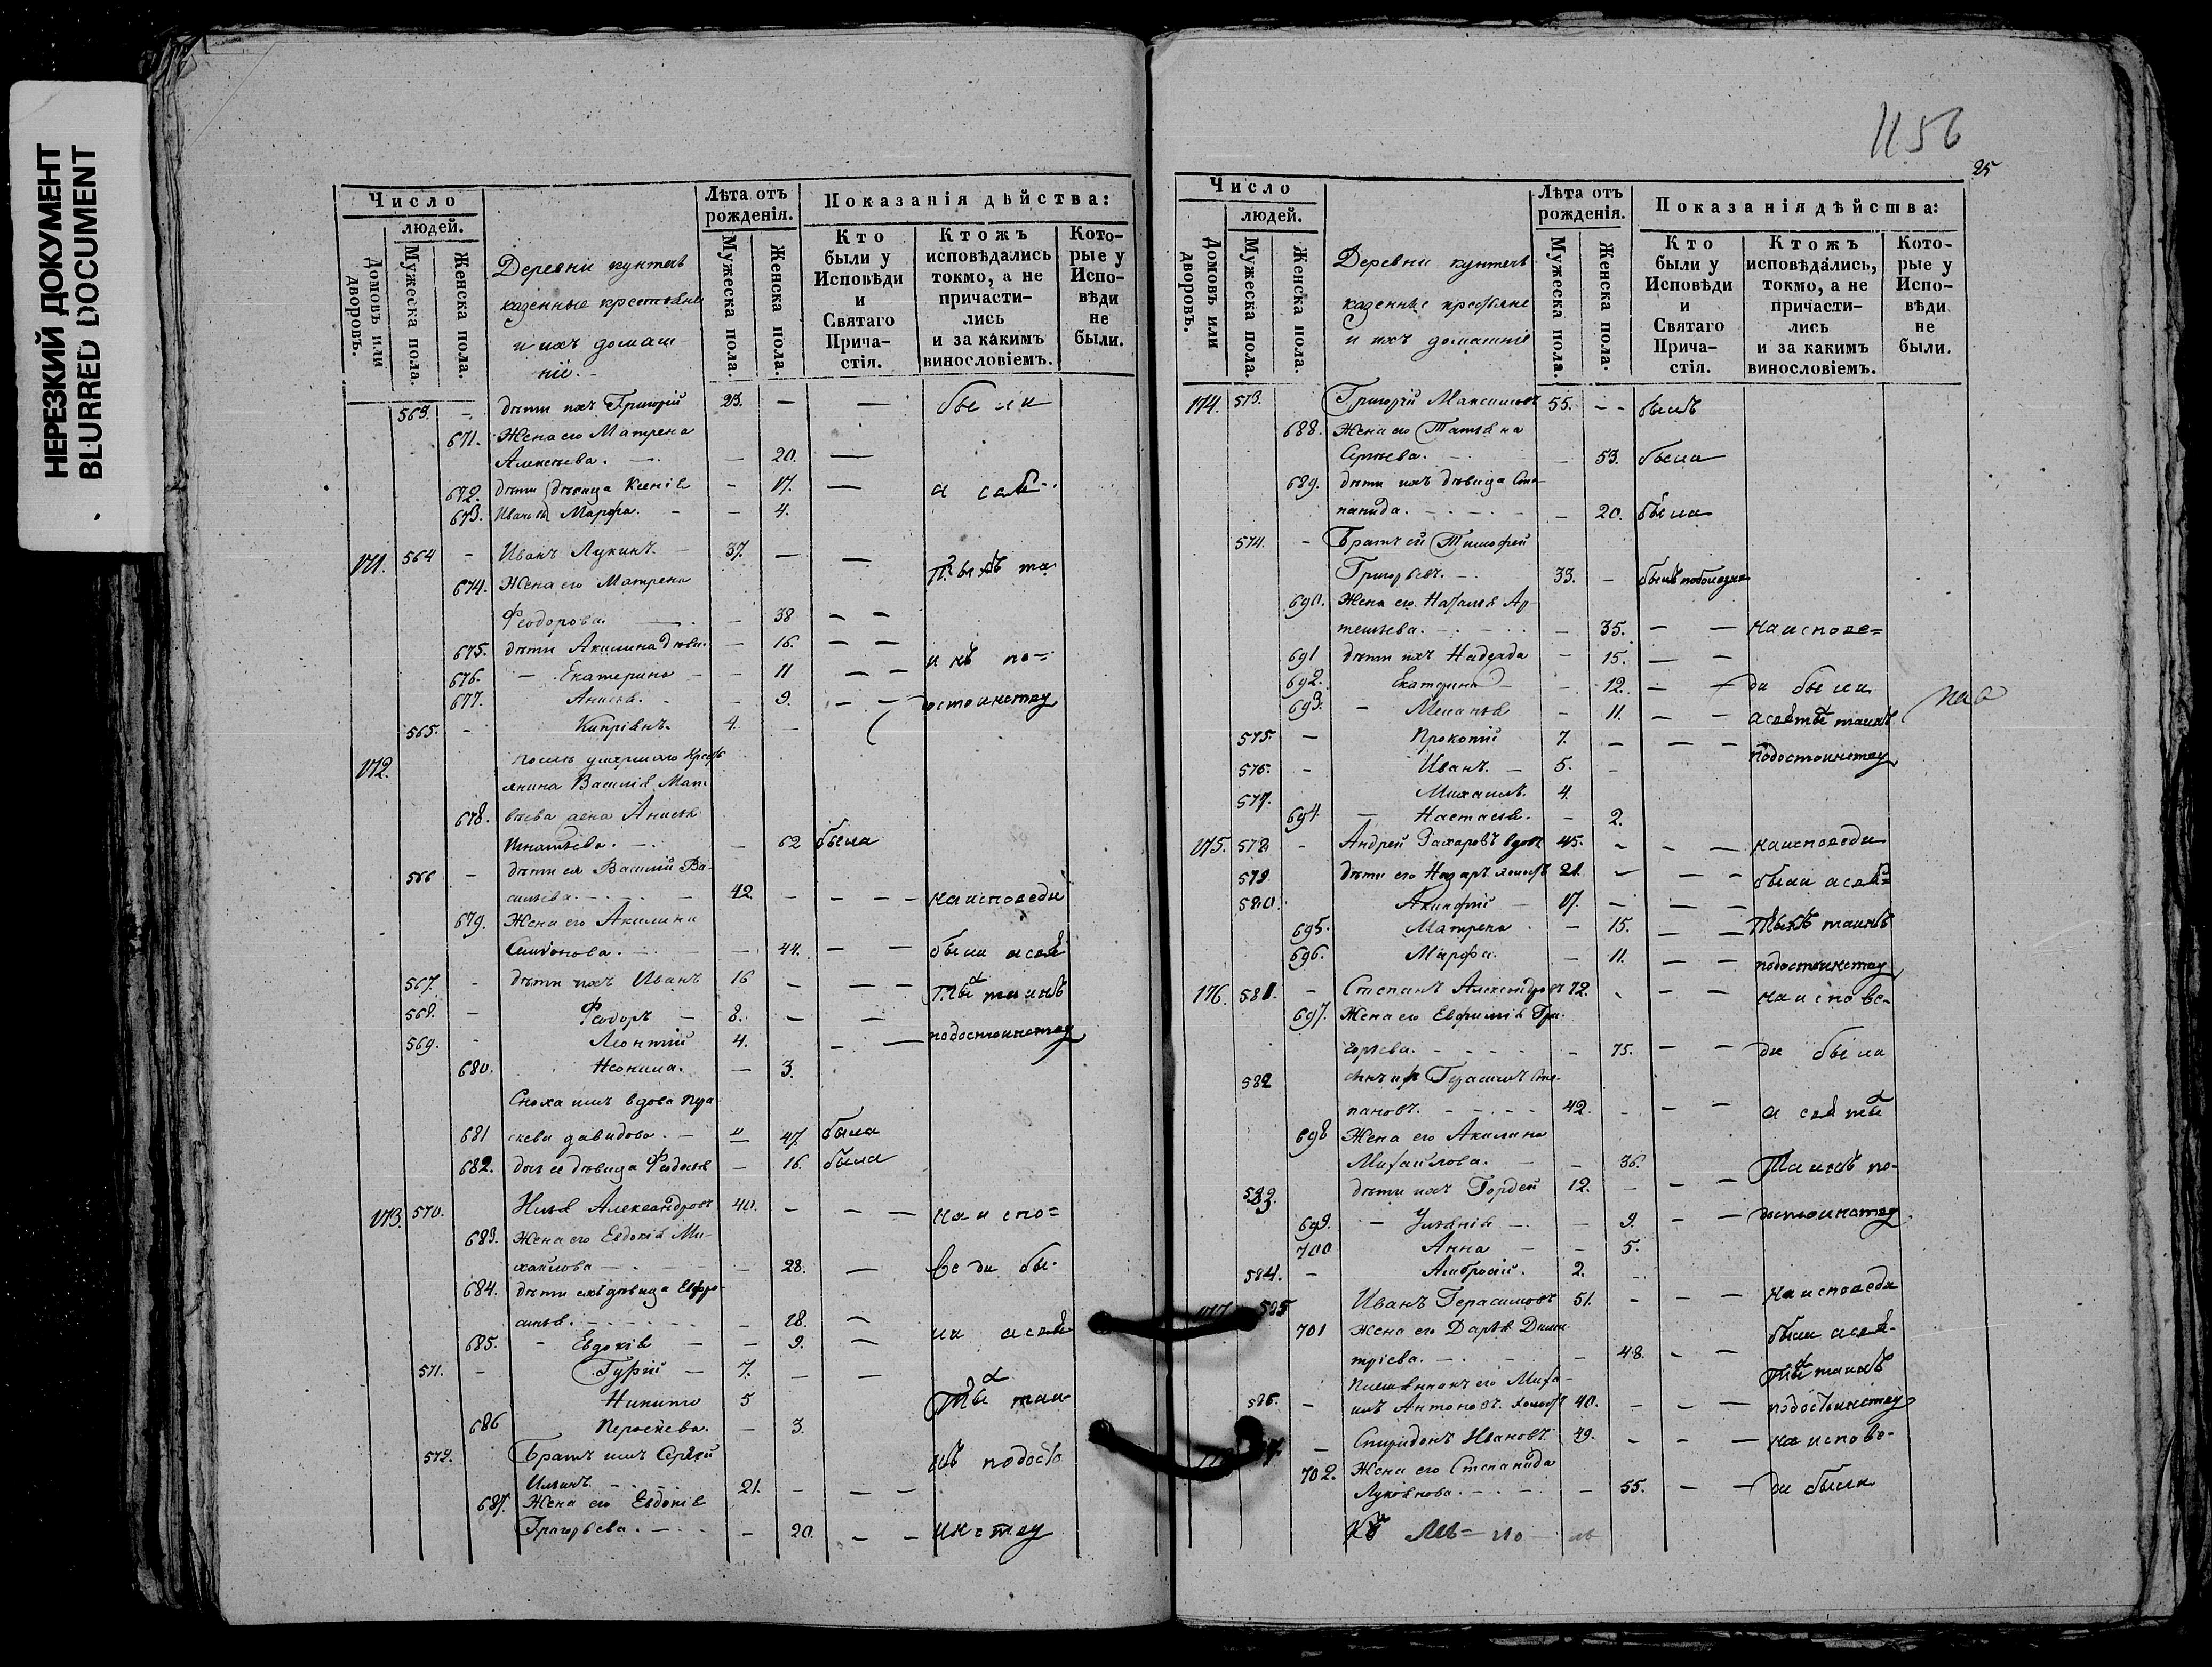 НЕРЕЗКИЙ ДОКУМЕНТ
BLURRED DOCUMENT
Число
людей.
Домовъ или дворовъ.
Мужеска пола.
Женска пола.
Деревни
казенные крестьяне
и ихъ домаш-
ніе.
Лѣта отъ рожденія.
Мужеска пола.
Женска пола.
Показанія дѣйства:
Кто были у Исповѣди и Святаго Прича-стія.
Ктожъ исповѣдались токмо, а не причасти-лись и за какимъ винословіемъ.
Кото-рые у Испо-вѣди не были.
563. - дѣти ихъ Григорій 23. — — были
671. Жена его Матрена
Алексѣева. — — 20. —
672. дѣти дѣвица Ксенія - 17. — а свя-
673. Марфа. - - 4.
171. 564 - Иванъ Лукинъ. - 37. — —
674. Жена его Матрена
Феодорова. — - 38 — —
675. дѣти Акилина - 16. — —
676. - Екатерина - - 11 — — по-
677. Анисья. - - 9. - - достоинству
565. - Кипріянъ. 4. -
172. После умершаго
янина Василія Мат-
678. вѣева жена Анисья
Игнатьева. - - 62 была
566 - дѣти ея Василій Ва-
сильевъ. - - - - 42. — — — на исповеди
679. Жена его Акилина
- - 44. — — были а свя
567. - дѣти ихъ Иванъ 16 — — — тыя таинъ
568. - Феодоръ - 8. — —
569. - Леонтій 4. - — подостоинству
680. Неонила. — 3.
Сноха имъ вдова Пра-
681 скева Давидова. - " 47. была
682. дѣвица Феодосья — 16. была
173. 570. Илья Александровъ 40. - — — на испо=
683. Жена его Евдокія Ми-
хайлова — - - — 28. — веди бы-
684. дѣти ихъ дѣвица Евфро-
синья. - - - - - 18. —
685. - Евдокія — — 9. — ли а свя
571. - Гурій — 7. — —
Никита 5 тыя таи-
686 — 3.
572. Братъ имъ Сергѣй
Ильинъ. - - - 21. - — — нъ подосто
687. Жена его Евдокія
Григорьева. - - - - 20. - - инству
1156
25
Число
людей.
Домовъ или дворовъ.
Мужеска пола.
Женска пола.
Деревни
казенные крестьяне
и ихъ домашніе
Лѣта отъ рожденія.
Мужеска пола.
Женска пола.
Показанія дѣйства:
Кто были у Исповѣди и Святаго Прича-стія.
Ктожъ исповѣдались, токмо, а не причасти-лись и за какимъ винословіемъ.
Кото-рые у Испо-вѣди не были.
174. 573. Григорій Максимовъ 55. - - былъ
688. Жена его Татьяна
Сергѣева. - - 53. была
689. дѣти ихъ дѣвица Сте-
панида. - - - - - 20. была
574. - Братъ ей Тимофей
Григорьевъ. - 33. -
690. Жена его Наталья Ар-
темьева. - - - - 35. — — на испове=
691 дѣти ихъ Надежда - 15. — —
692. Екатерина - - 12. — — ди были
693. - Меланья - 11. — — а святыя таинъ
575. - Прокопій 7. — — —
576. - Иванъ. - 5. - подостоинству
577. Михаилъ 4.
694. - Настасья. - 2.
175. 578 - Андрей Захаровъ вдовъ 45. - - — на исповеди
579. дѣти его Назаръ холостъ 21. — - - были а свя=
580. Акинфій - 17. — — —
695. Матрена - 15. — — тыхъ таинъ
696. Марфа. - 11. — — подостоинству
176. 581. - Степанъ Александровъ 72. - - — на испове-
697. Жена его Евфимія Гри-
горьева. - - - - - 75. — — ди были
582 сынъ ихъ Герасимъ Сте-
пановъ. - - - - 42. - — — а святыя
698 Жена его Акилина
Михайлова. - - 36. таинъ по-
583. дѣти ихъ Гордей 12. - — —
699. - Ульянія - - 9. - — достоинству
700 Анна - - 5.
584. - Амбросій. 2. -
177 585 Иванъ Герасимовъ 51. - - — на исповеди
701 Жена его Дарья Дими-
тріева. - - - 48. - — были а свя-
Племянникъ его Миха- тыя таинъ
586. - илъ Антоновъ. холостъ 40. - - — подостоинству
- Спиридонъ Ивановъ. 49. - - — на испове-
702. Жена его Степанида
Лукьянова. - - - - 55. — — ди были